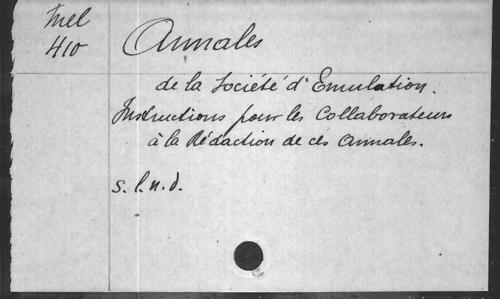 Mel
410
Annales
de la Société d'Emulation.
Instructions pour les Collaborateurs
à la Rédaction de ces Annales.
s. l. n. d.